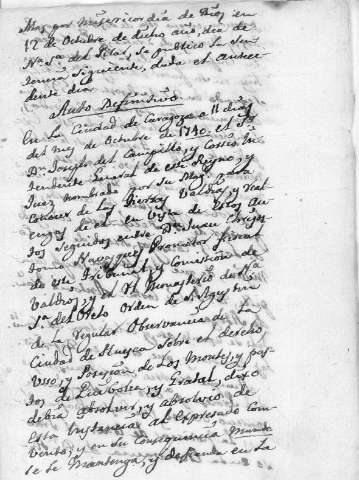 Mas por misericordia de Dios en
12 de Octubre de dicho año, dia de
Nª Sª del Pilar, se publicó la sen
tencia siguiente, dada el antece
dente dia.
Auto Definitivo
En la Ciudad de Zaragoza a 11 dias
del mes de Octubre de 1740, el Sr
Dn Joseph del Campillo, y Cossio, In
tendente General de este Reyno, y
Juez nombrado por su Magd para
conocer de las tierras Valdias, y Real
engas de el en vista de estos Au
tos seguidos entre Dn Juan
Navasques Promotor fiscal
de este Tribunal, y Comission de
Valdios, y el Rl Monasterio de Nª
Sª del Orden de Sn Agustin
de la regular Observancia de la
Ciudad de Huesca sobre el derecho
uso, y Posesion de los Montes, y pas
tos de y Gratal, dixo
debia absolver, y absolvió de
esta instancia al expresado Con
vento, y en su consequencia manda
se le mantenga, y defienda en la